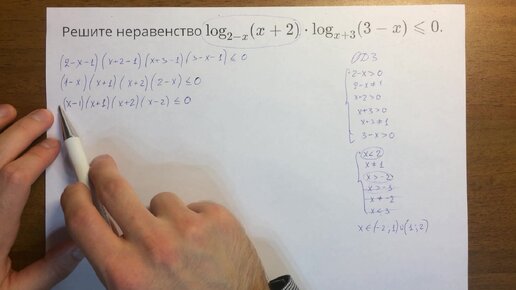 Решите неравенство log₂₋ₓ(x + 2) · logₓ₊₃(3 − x) ⩽ 0.
(2-x-1)(x+2-1)(x+3-1)(3-x-1) ≤ 0
(1-x)(x+1)(x+2)(2-x) ≤ 0
(x-1)(x+1)(x+2)(x-2) ≤ 0
ОДЗ
2-x>0
2-x≠1
x+2>0
x+3>0
x+3≠1
3-x>0
x<2
x≠1
x>-2
x>-3
x≠-2
x<3
x∈(-2;1)∪(1;2)